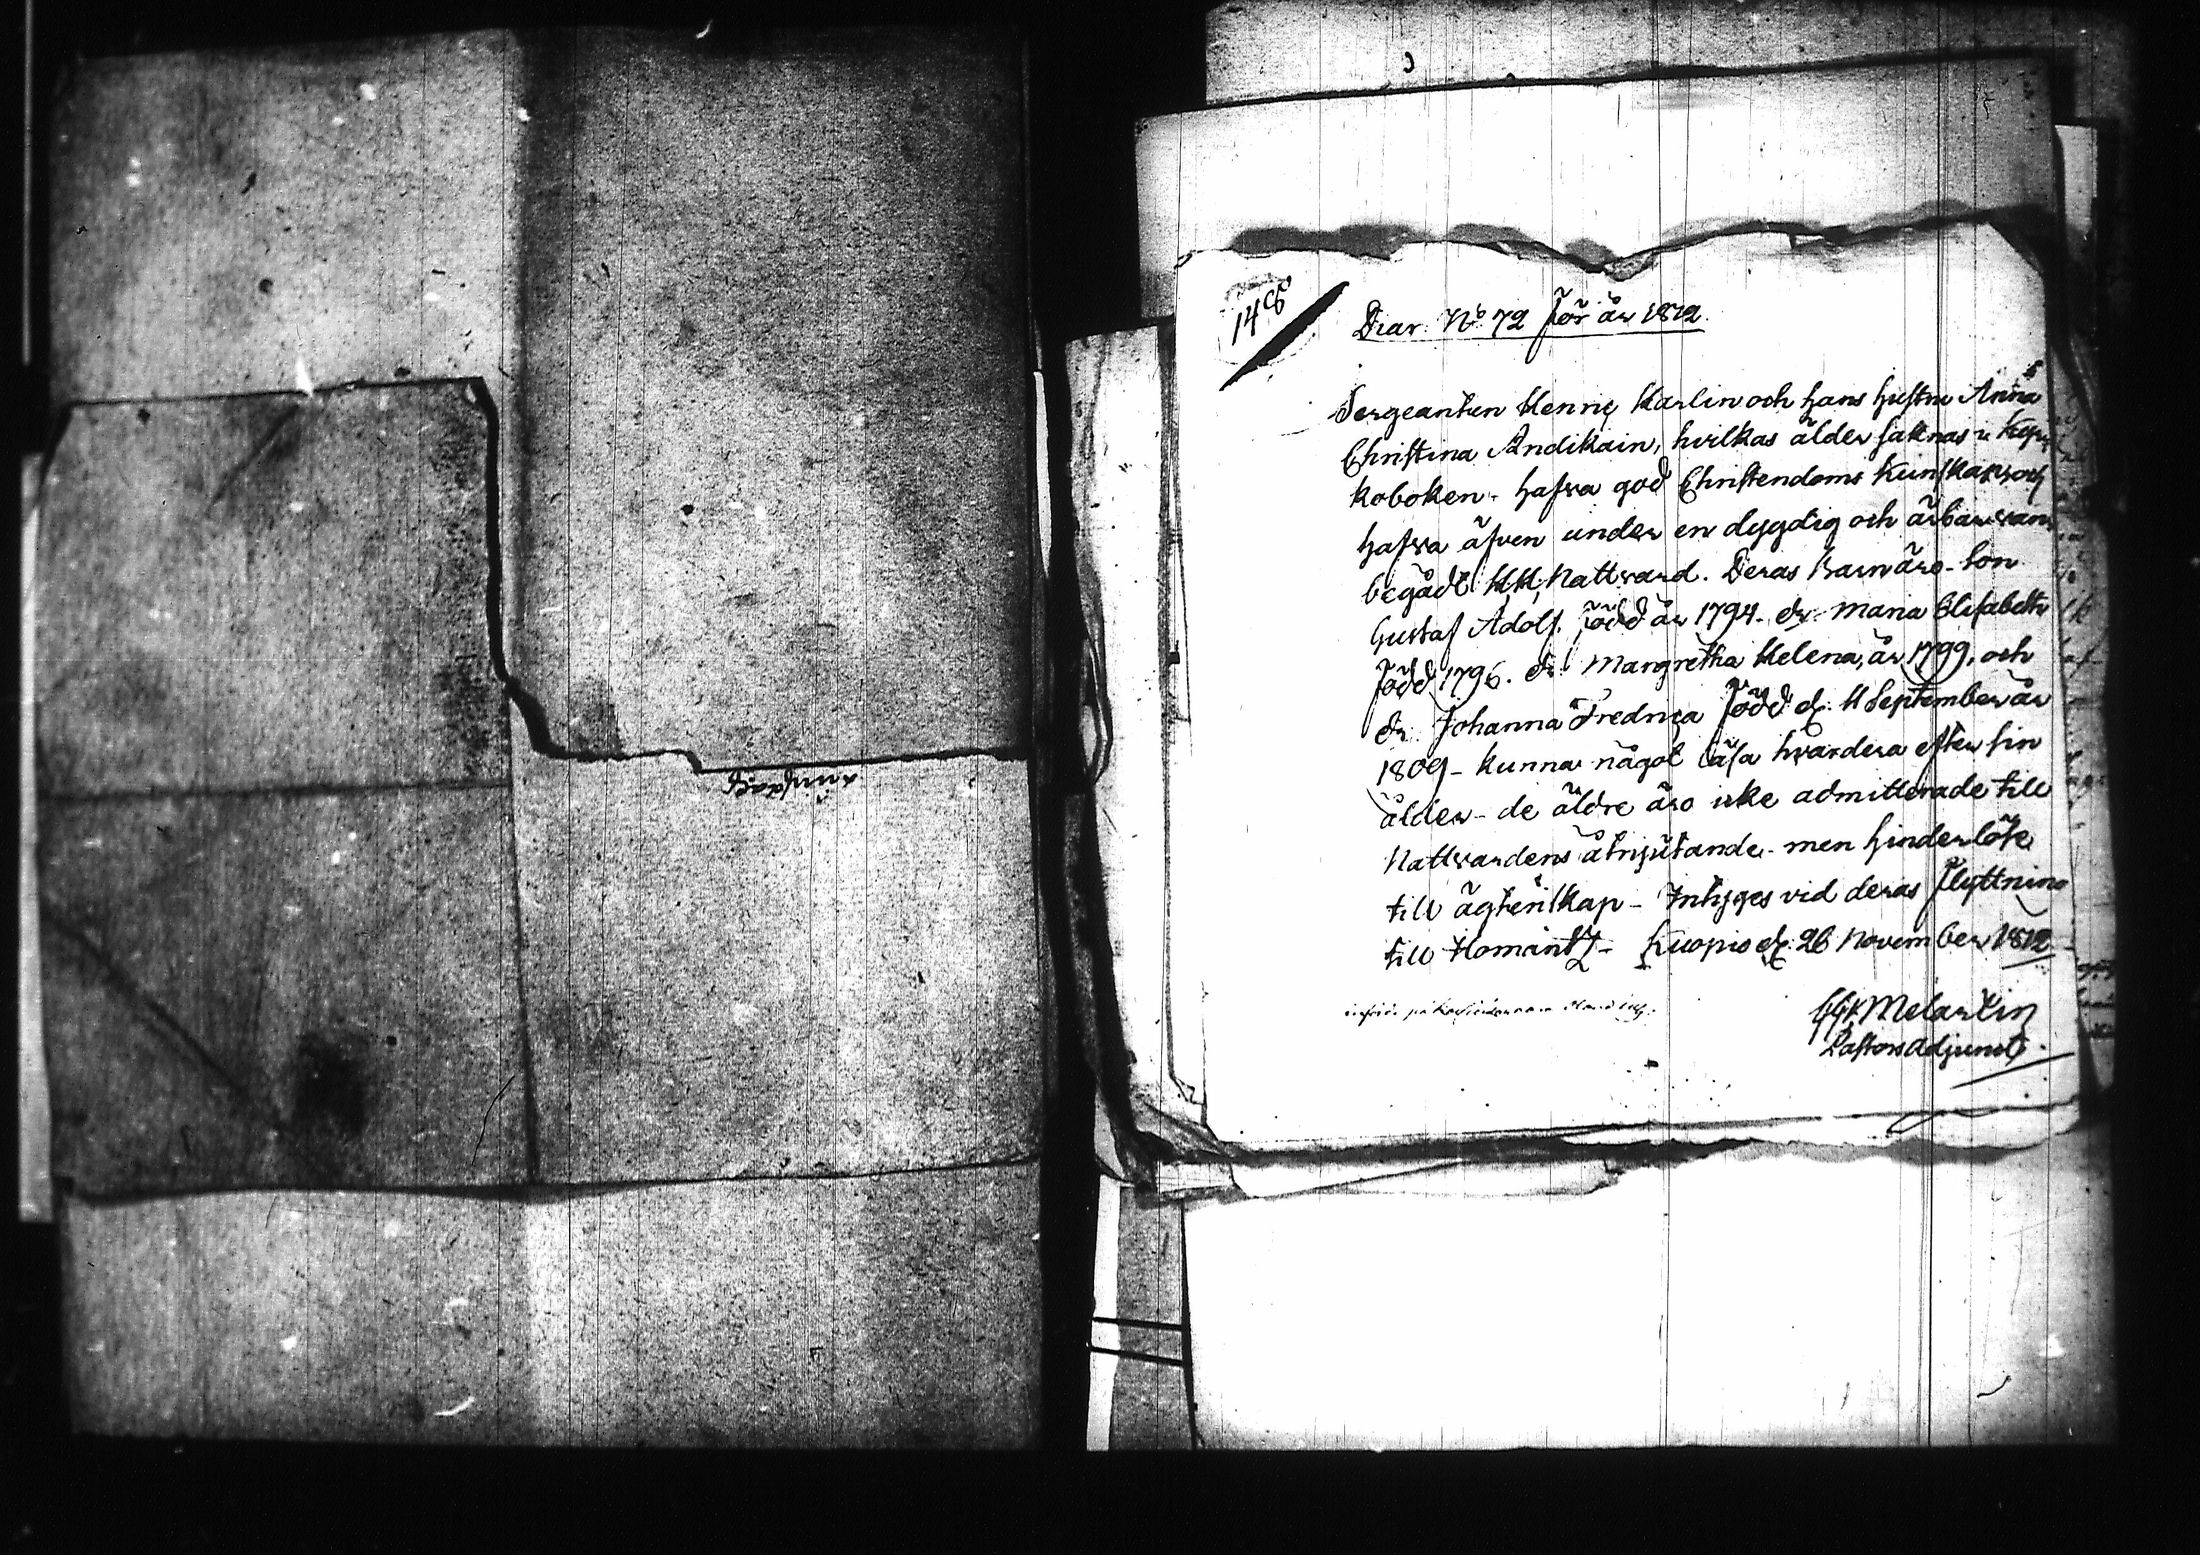 148
Diar. No 72 för år 1812.
Sergeanten Henric Karlin och hans hustru Anna
Christina Andikain, hvilkas ålder saknas i
koboken - hafva god Christendoms kunskap och
hafva äfven under en dygdig och ärbar
begådt H. H. Nattvard. Deras Barn äro - Son
Gustaf Adolf. född år 1794. dr. Maria Elisabeth
född 1796. dr. Margretha Helena, år 1799, och
dr. Johanna Fredrica född d. 11 September år
1809 - kunna något läsa hvardera efter sin
ålder - de äldre äro icke admitterade till
Nattvardens åtnjutande - men hinderlöse
till ägtenskap - Intyges vid deras flyttning
till Ilomantz - Kuopio d. 26 November 1812
Melartin
Pastors Adjunct.